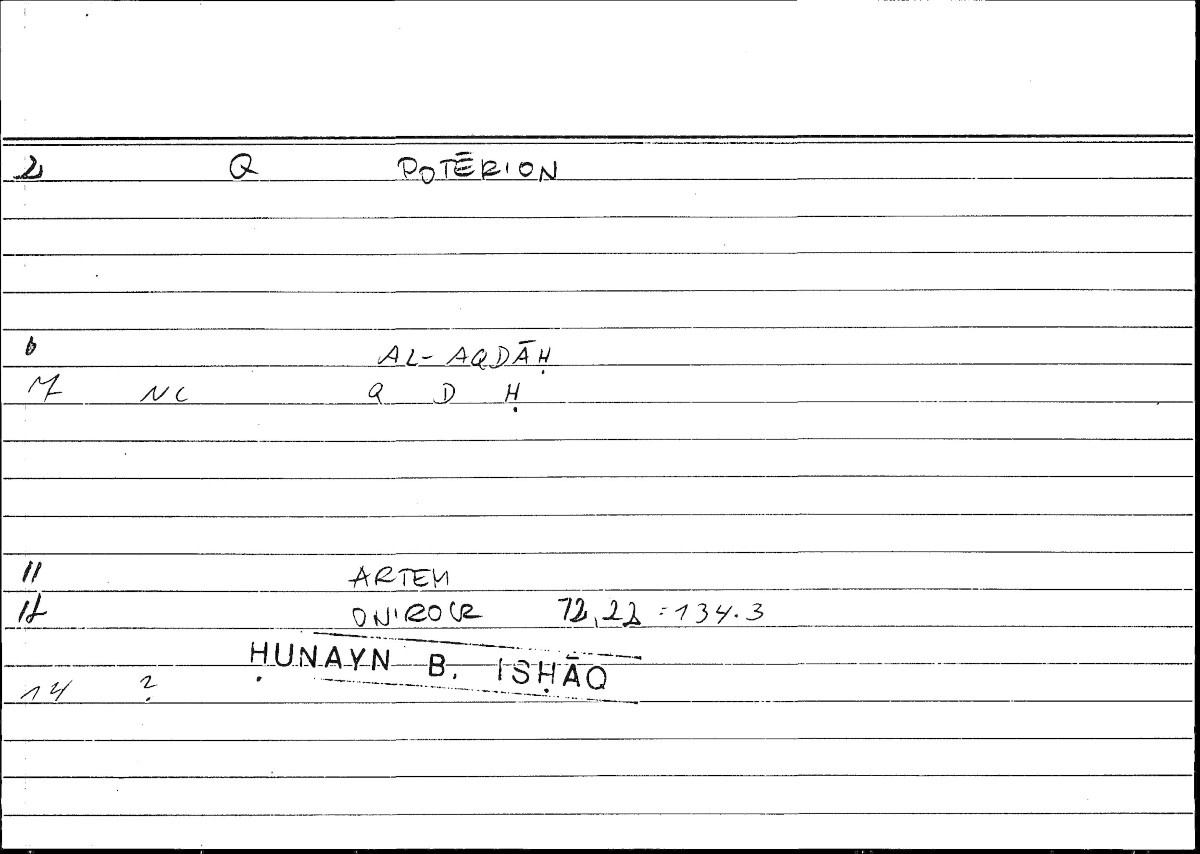 2 Q POTĒRION
6 AL-AQDĀḤ
7 NC Q D Ḥ
11 ARTEM
12 ONIROCR 72,22 : 134.3
ḤUNAYN B. ISḤĀQ
14 ?